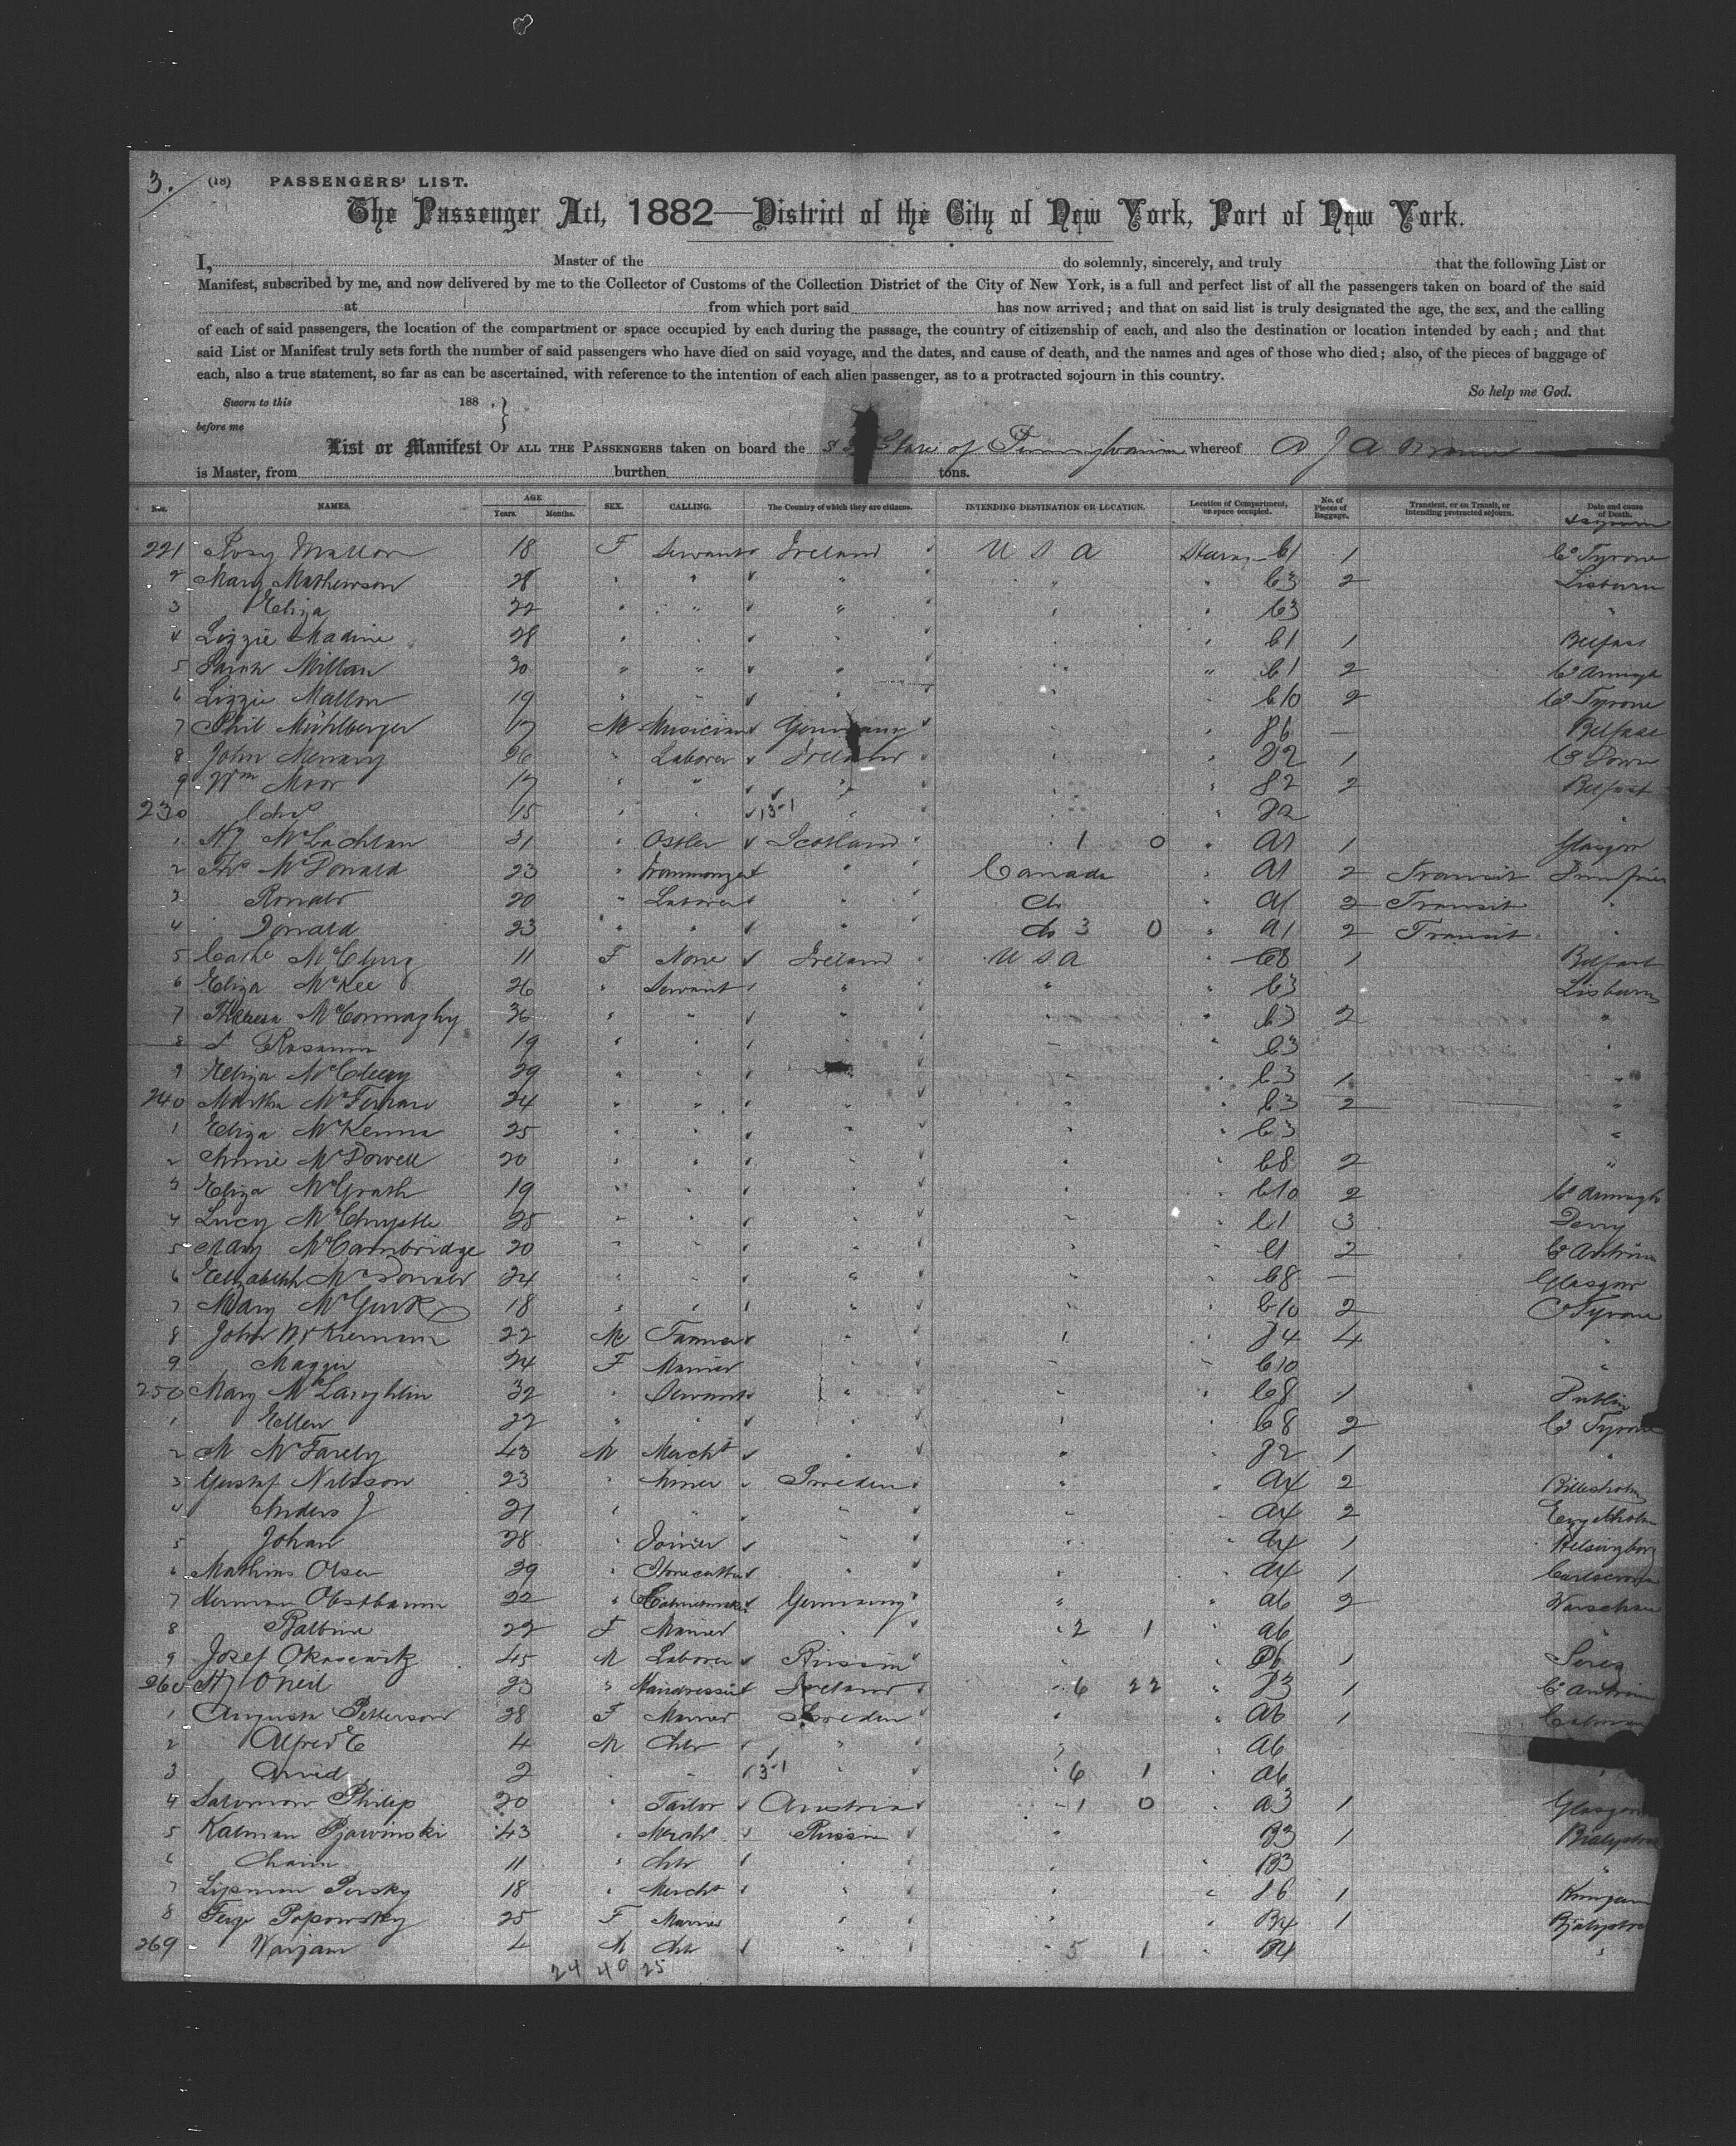 3.
(18) PASSENGERS' LIST.
The Passenger Act, 1882—District of the City of New York, Port of New York.
I, Master of the do solemnly, sincerely, and truly that the following List or
Manifest, subscribed by me, and now delivered by me to the Collector of Customs of the Collection District of the City of New York, is a full and perfect list of all the passengers taken on board of the said
at from which port said has now arrived; and that on said list is truly designated the age, the sex, and the calling
of each of said passengers, the location of the compartment or space occupied by each during the passage, the country of citizenship of each, and also the destination or location intended by each; and that
said List or Manifest truly sets forth the number of said passengers who have died on said voyage, and the dates, and cause of death, and the names and ages of those who died; also, of the pieces of baggage of
each, also a true statement, so far as can be ascertained, with reference to the intention of each alien passenger, as to a protracted sojourn in this country.
So help me God.
Sworn to this 188 . }
before me
List or Manifest OF ALL THE PASSENGERS taken on board the S.S. State of Pennsylvania whereof A J A
is Master, from burthen tons.
No. NAMES. AGE Years. Months. SEX. CALLING. The Country of which they are citizens. INTENDING DESTINATION OR LOCATION. Location of Compartment, or space occupied. No. of Pieces of Baggage. Transient, or on Transit, or intending protracted sojourn. Date and cause of Death.
221 Rosy Mallon 18 F Servant Ireland U S A Steerage C1 1 Co Tyrone
2 Mary Mathewson 28 " " " " " C3 2 Lisburn
3 Eliza 22 " " " " " C3 "
4 Lizzie Madine 28 " " " " " C1 1 Belfast
5 Sarah Millan 30 " " " " " C1 2 Co Armagh
6 Lizzie Mallon 19 " " " " " C10 2 Co Tyrone
7 Phil Mühlberger 17 M Musician Germany " " 86 — Belfast
8 John 26 " Laborer Ireland " " 82 1 Co Down
9 Wm Moor 17 " " " " " 82 2 Belfast
230 Chas 15 " 13-1 " " " 82 "
1 Hy McLachlan 31 " Ostler Scotland " 1 0 " A1 1 Glasgow
2 Thos McDonald 23 " Ironmonger " Canada " A1 2 Transit Dumfries
3 Ronald 20 " Laborer " do " A1 2 Transit "
4 Donald 23 " " " do 3 0 " A1 2 Transit "
5 Cathe McClurg 11 F None Ireland U S A " C8 1 Belfast
6 Eliza McKee 26 " Servant " " " C3 Lisburn
7 Theresa McConnaghy 36 " " " " " C3 2 "
8 Rosanna 19 " " " " " C3 "
9 Eliza 29 " " " " " C3 1 "
240 Martha McFerran 24 " " " " " C3 2 "
1 Eliza McKenna 25 " " " " " C3 "
2 Annie McDowell 20 " " " " " C8 2 "
3 Eliza McGrath 19 " " " " " C10 2 Co Armagh
4 Lucy McChrystle 25 " " " " " C1 3 Derry
5 Mary McCambridge 20 " " " " " C1 2 Co Antrim
6 Elizabeth McDonald 24 " " " " " C8 — Glasgow
7 Mary McGurk 18 " " " " " C10 2 Co Tyrone
8 John McKiernan 22 M Farmer " " " 84 4 "
9 Maggie 24 F Married " " " C10 "
250 Mary McLaughlin 32 " Servant " " " C8 1 Dublin
1 Ellen 22 " " " " " C8 2 Co Tyrone
2 M 43 M Mercht " " " 82 1 "
3 Gustaf Nilsson 23 " Miner Sweden " " A4 2 Billesholm
4 Anders J 21 " " " " " A4 2 Engelholm
5 Johan 28 " Joiner " " " A4 1 Helsingborg
6 Mathias Olsen 29 " Stonecutter " " " A4 1 Carlscrona
7 Herman Obstbaum 22 " Cabinetmaker Germany " " A6 2 Warschau
8 Balbine 22 F Married " " 2 1 " A6 "
9 Josef Okasewitz 45 M Laborer Russia " " 1
260 Hy ONeil 23 " Hairdresser Ireland " 6 22 " 83 1 Co Antrim
1 Augusta Petterson 28 F Married Sweden " " A6 1
2 Alfred E 4 M Chd " " " A6
3 Arvid 2 " " 3-1 " " 6 1 " A6 "
4 Salomon Philip 20 " Tailor Austria " 1 0 " A3 1 Glasgow
5 Kalman 43 " Mercht Russia " B3 1 Bialystok
6 Chaim 11 " Chd " " " B3 "
7 Lipman Persky 18 " Mercht " " " 86 1
8 Feige Popowsky 25 F Married " " " B4 1 Bialystok
269 Warjam 4 M Chd " " 5 1 " B4 "
24 49 25